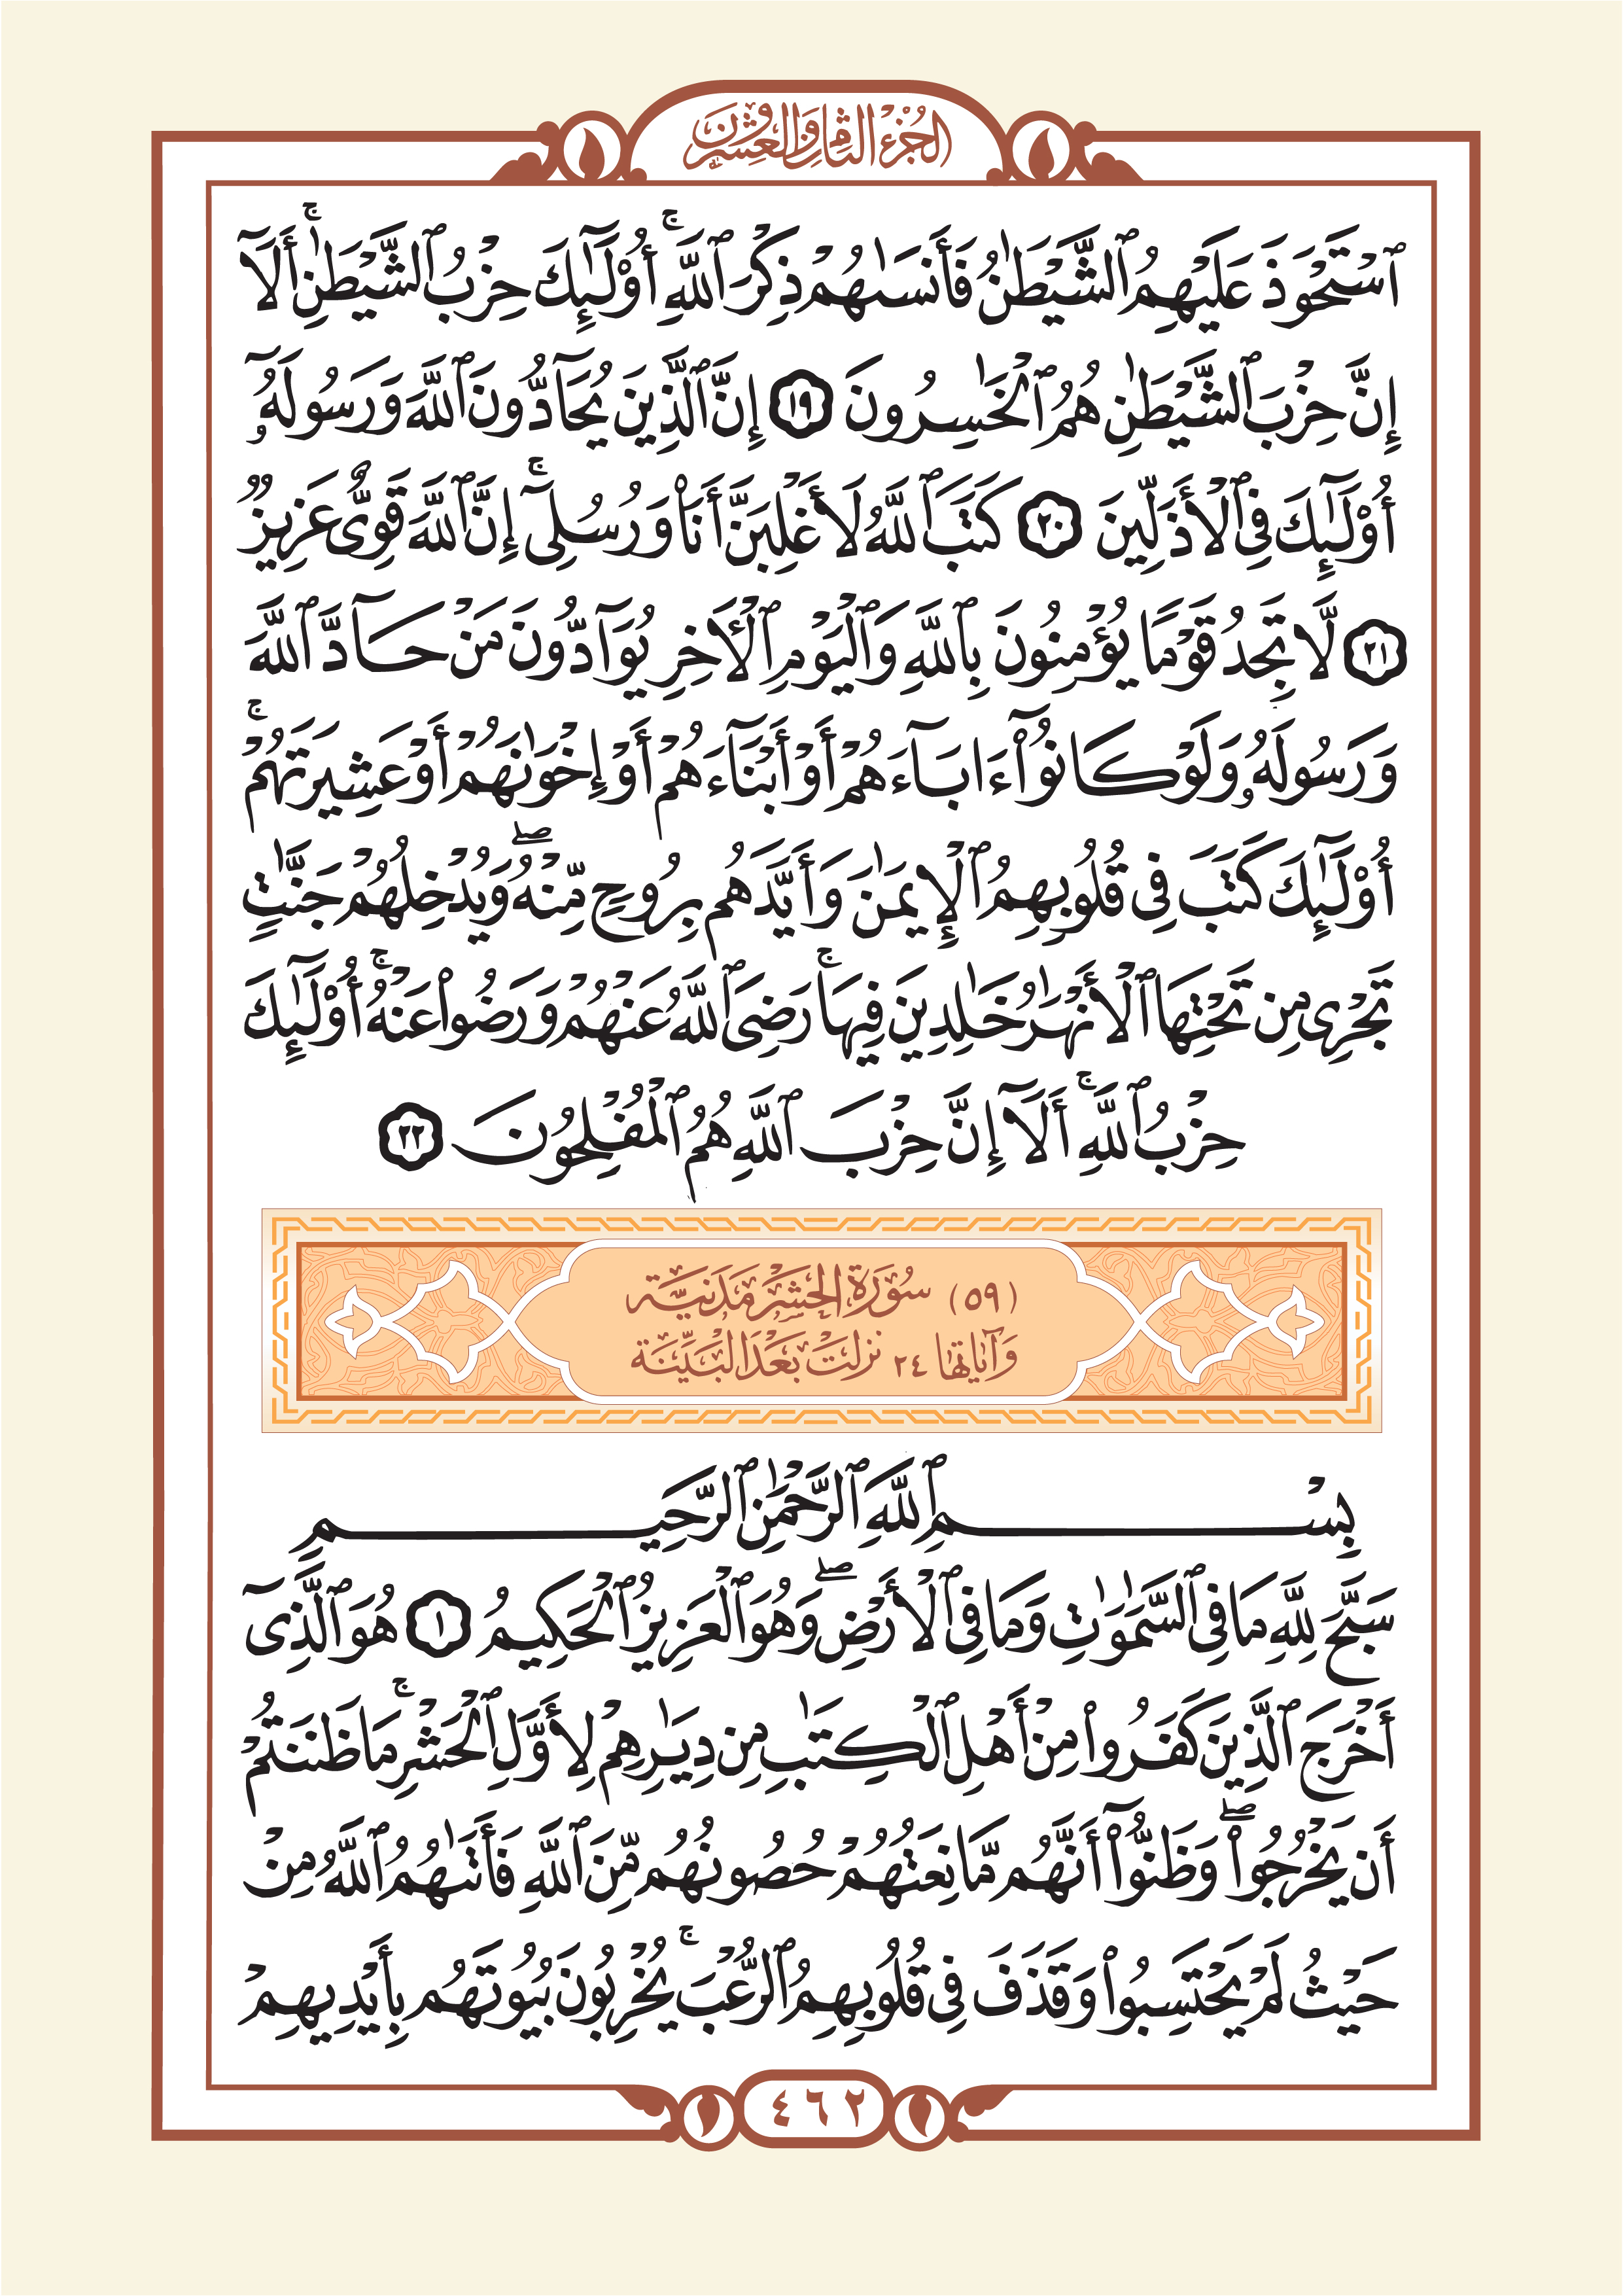 الجزء الثامن والعشرون
ٱسْتَحْوَذَ عَلَيْهِمُ ٱلشَّيْطَٰنُ فَأَنسَىٰهُمْ ذِكْرَ ٱللَّهِ ۚ أُو۟لَٰٓئِكَ حِزْبُ ٱلشَّيْطَٰنِ ۚ أَلَآ
إِنَّ حِزْبَ ٱلشَّيْطَٰنِ هُمُ ٱلْخَٰسِرُونَ ١٩ إِنَّ ٱلَّذِينَ يُحَآدُّونَ ٱللَّهَ وَرَسُولَهُۥٓ
أُو۟لَٰٓئِكَ فِى ٱلْأَذَلِّينَ ٢٠ كَتَبَ ٱللَّهُ لَأَغْلِبَنَّ أَنَا۠ وَرُسُلِىٓ ۚ إِنَّ ٱللَّهَ قَوِىٌّ عَزِيزٌ
٢١ لَّا تَجِدُ قَوْمًا يُؤْمِنُونَ بِٱللَّهِ وَٱلْيَوْمِ ٱلْأَخِرِ يُوَآدُّونَ مَنْ حَآدَّ ٱللَّهَ
وَرَسُولَهُۥ وَلَوْ كَانُوٓا۟ ءَابَآءَهُمْ أَوْ أَبْنَآءَهُمْ أَوْ إِخْوَٰنَهُمْ أَوْ عَشِيرَتَهُمْ ۚ
أُو۟لَٰٓئِكَ كَتَبَ فِى قُلُوبِهِمُ ٱلْإِيمَٰنَ وَأَيَّدَهُم بِرُوحٍ مِّنْهُ ۖ وَيُدْخِلُهُمْ جَنَّٰتٍ
تَجْرِى مِن تَحْتِهَا ٱلْأَنْهَٰرُ خَٰلِدِينَ فِيهَا ۚ رَضِىَ ٱللَّهُ عَنْهُمْ وَرَضُوا۟ عَنْهُ ۚ أُو۟لَٰٓئِكَ
حِزْبُ ٱللَّهِ ۚ أَلَآ إِنَّ حِزْبَ ٱللَّهِ هُمُ ٱلْمُفْلِحُونَ ٢٢
(٥٩) سُورَة الحَشْرِ مَدَنِيَّة
وَآيَاتهَا ٢٤ نَزلَتْ بَعْدَ البَيِّنَة
بِسْمِ ٱللَّهِ ٱلرَّحْمَٰنِ ٱلرَّحِيمِ
سَبَّحَ لِلَّهِ مَا فِى ٱلسَّمَٰوَٰتِ وَمَا فِى ٱلْأَرْضِ ۖ وَهُوَ ٱلْعَزِيزُ ٱلْحَكِيمُ ١ هُوَ ٱلَّذِىٓ
أَخْرَجَ ٱلَّذِينَ كَفَرُوا۟ مِنْ أَهْلِ ٱلْكِتَٰبِ مِن دِيَٰرِهِمْ لِأَوَّلِ ٱلْحَشْرِ ۚ مَا ظَنَنتُمْ
أَن يَخْرُجُوا۟ ۖ وَظَنُّوٓا۟ أَنَّهُم مَّانِعَتُهُمْ حُصُونُهُم مِّنَ ٱللَّهِ فَأَتَىٰهُمُ ٱللَّهُ مِنْ
حَيْثُ لَمْ يَحْتَسِبُوا۟ وَقَذَفَ فِى قُلُوبِهِمُ ٱلرُّعْبَ ۚ يُخْرِبُونَ بُيُوتَهُم بِأَيْدِيهِمْ
٤٦٢